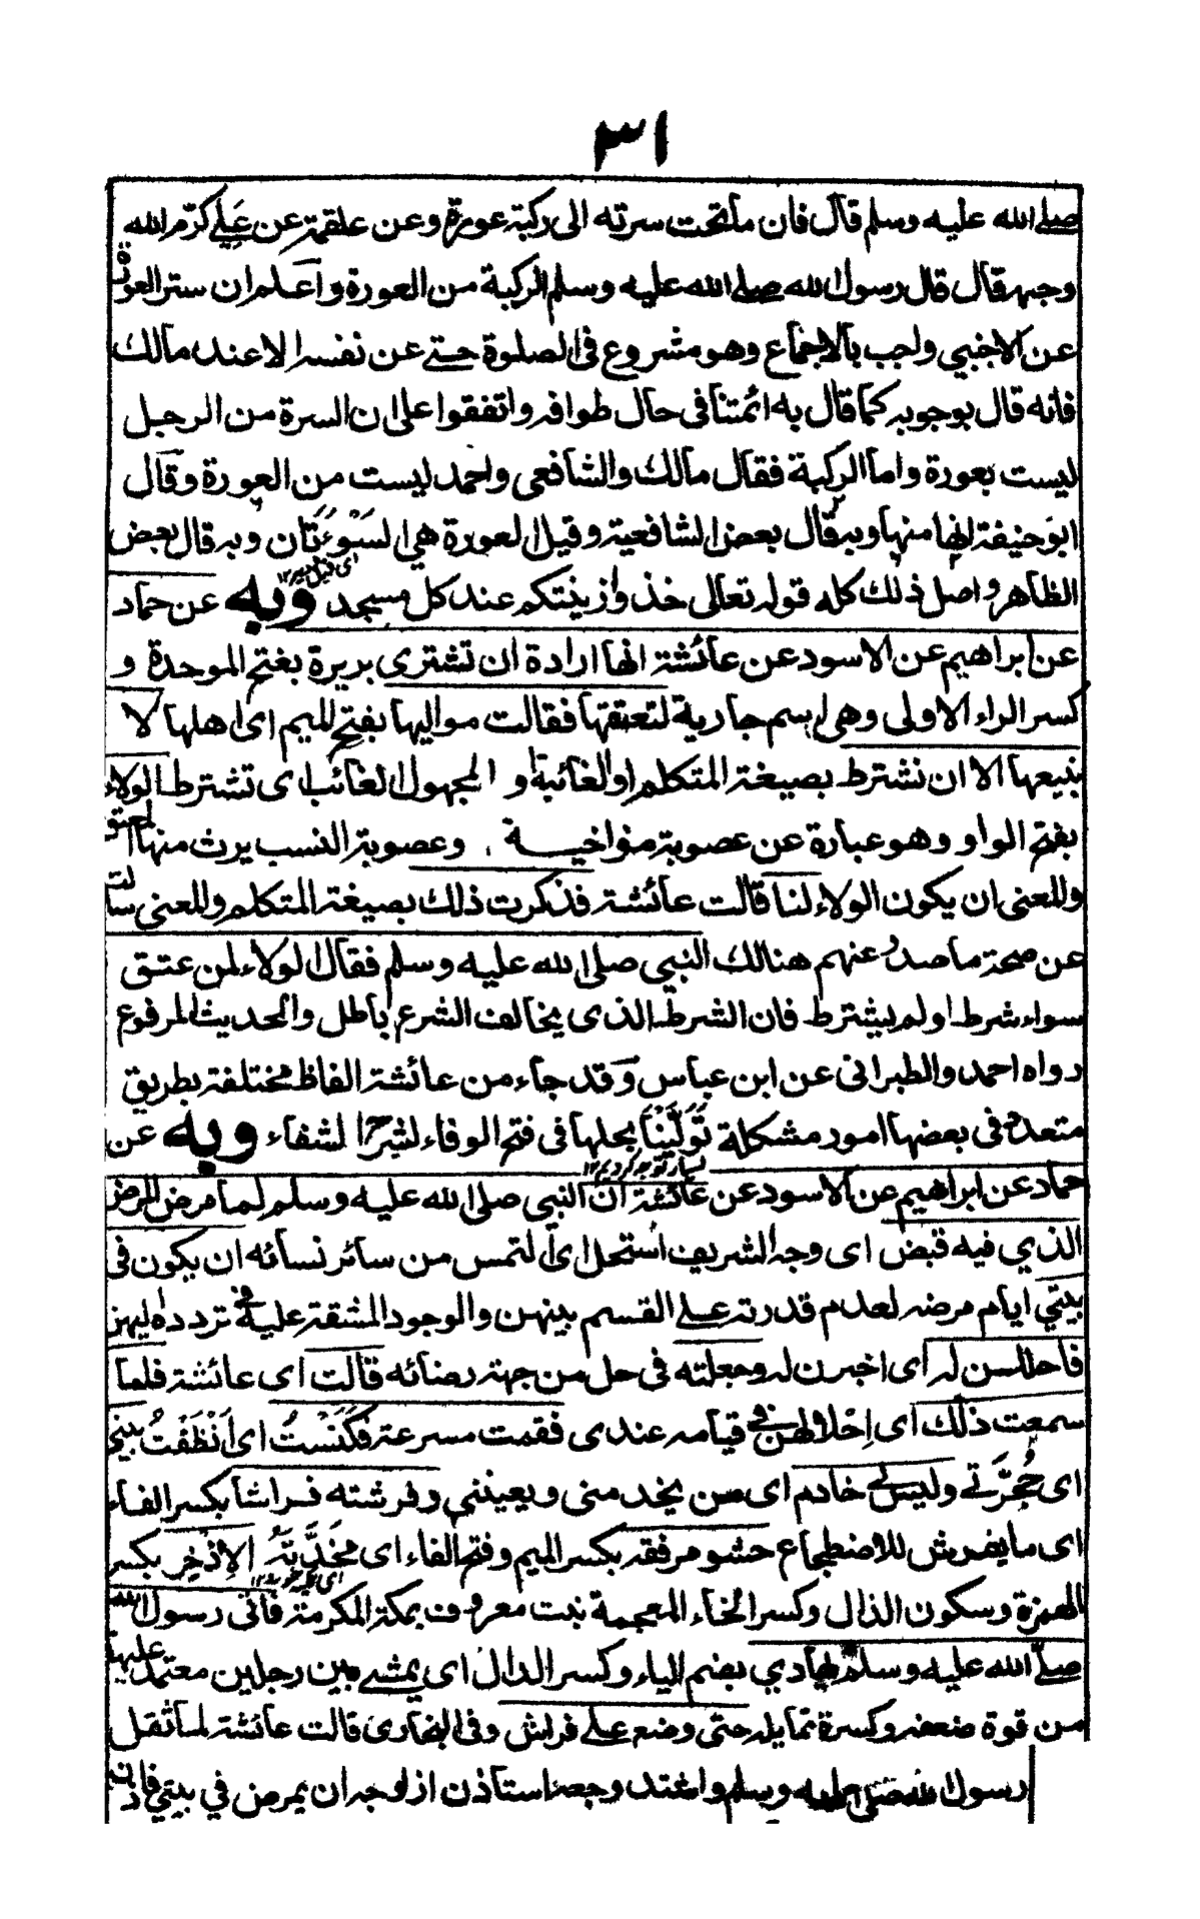 ٣١
صلى الله عليه وسلم قال فان ما تحت سرته الى ركبته عورة وعن علقمة عن علي كرم الله
وجهه قال قال رسول الله صلى الله عليه وسلم الركبة من العورة واعلم ان ستر العورة
عن الاجنبي واجب بالاجماع وهو مشروع فى الصلوة حتى عن نفسه الا عند مالك
فانه قال بوجوبه كما قال به ائمتنا فى حال طوافه واتفقوا على ان السرة من الرجل
ليست بعورة واما الركبة فقال مالك والشافعى واحمد ليست من العورة وقال
ابو حنيفة انها منها وبه قال بعض الشافعية وقيل العورة هى السَوْءَتَان وبه قال بعض
الظاهر واصل ذلك كله قوله تعالى خذوا زينتكم عند كل مسجد وبه عن حماد
عن ابراهيم عن الاسود عن عائشة انها ارادة ان تشترى بريرة بفتح الموحدة و
كسر الراء الاولى وهى اسم جارية لتعتقها فقالت مواليها بفتح الميم اى اهلها لا
نبيعها الا ان نشترط بصيغة المتكلم او الغائبة او المجهول الغائب اى تشترط الولاء
بفتح الواو وهو عبارة عن عصوبة مؤاخية وعصوبة النسب يرث منها المعتق
والمعنى ان يكون الولاء لنا قالت عائشة فذكرت ذلك بصيغة المتكلم والمعنى سألت
عن صحة ما صدر عنهم هنالك النبى صلى الله عليه وسلم فقال الولاء لمن عتق
سواء شرط او لم يشترط فان الشرط الذى يخالف الشرع باطل والحديث المرفوع
رواه احمد والطبرانى عن ابن عباس وقد جاء من عائشة الفاظ مختلفة بطريق
متعددة فى بعضها امور مشكلة تَوَلَّيْنَا بحلها فى فتح الوفاء لشرح الشفاء وبه عن
حماد عن ابراهيم عن الاسود عن عائشة ان النبى صلى الله عليه وسلم لما مرض المرض
الذي فيه قبض اى وجه الشريف استحل اى التمس من سائر نسائه ان يكون فى
بيتي ايام مرضه لعدم قدرته على القسم بينهن والوجود المشقة عليه فى تردده اليهن
فاحللن له اى اخبرن له وجعلته فى حل من جهة رضائه قالت اى عائشة فلما
سمعت ذلك اى إحلالهن فى قيامه عندى فقمت مسرعة فَكَنَسْتُ اى اَنْظَفْتُ بيتي
اى حُجْرَتى وليس لى خادم اى من يخدمنى ويعيننى وفرشته فراشا بكسر الفاء
اى ما يفرش للاضطجاع حشو مرفقه بكسر الميم وفتح الفاء اى مخَدَّتهُ الاِذْخِر بكسر
الهمزة وسكون الذال وكسر الخاء المعجمة نبت معروف بمكة المكرمة فأتى رسول الله
صلى الله عليه وسلم يهادي بضم الياء وكسر الدال اى يمشى بين رجلين معتمد عليهما
من قوة ضعفه وكسرة تمايله حتى وضع على فراش وفى البخارى قالت عائشة لما ثقل
رسول الله صلى الله عليه وسلم واشتد وجعه استأذن ازواجه ان يمرض في بيتي فاذن